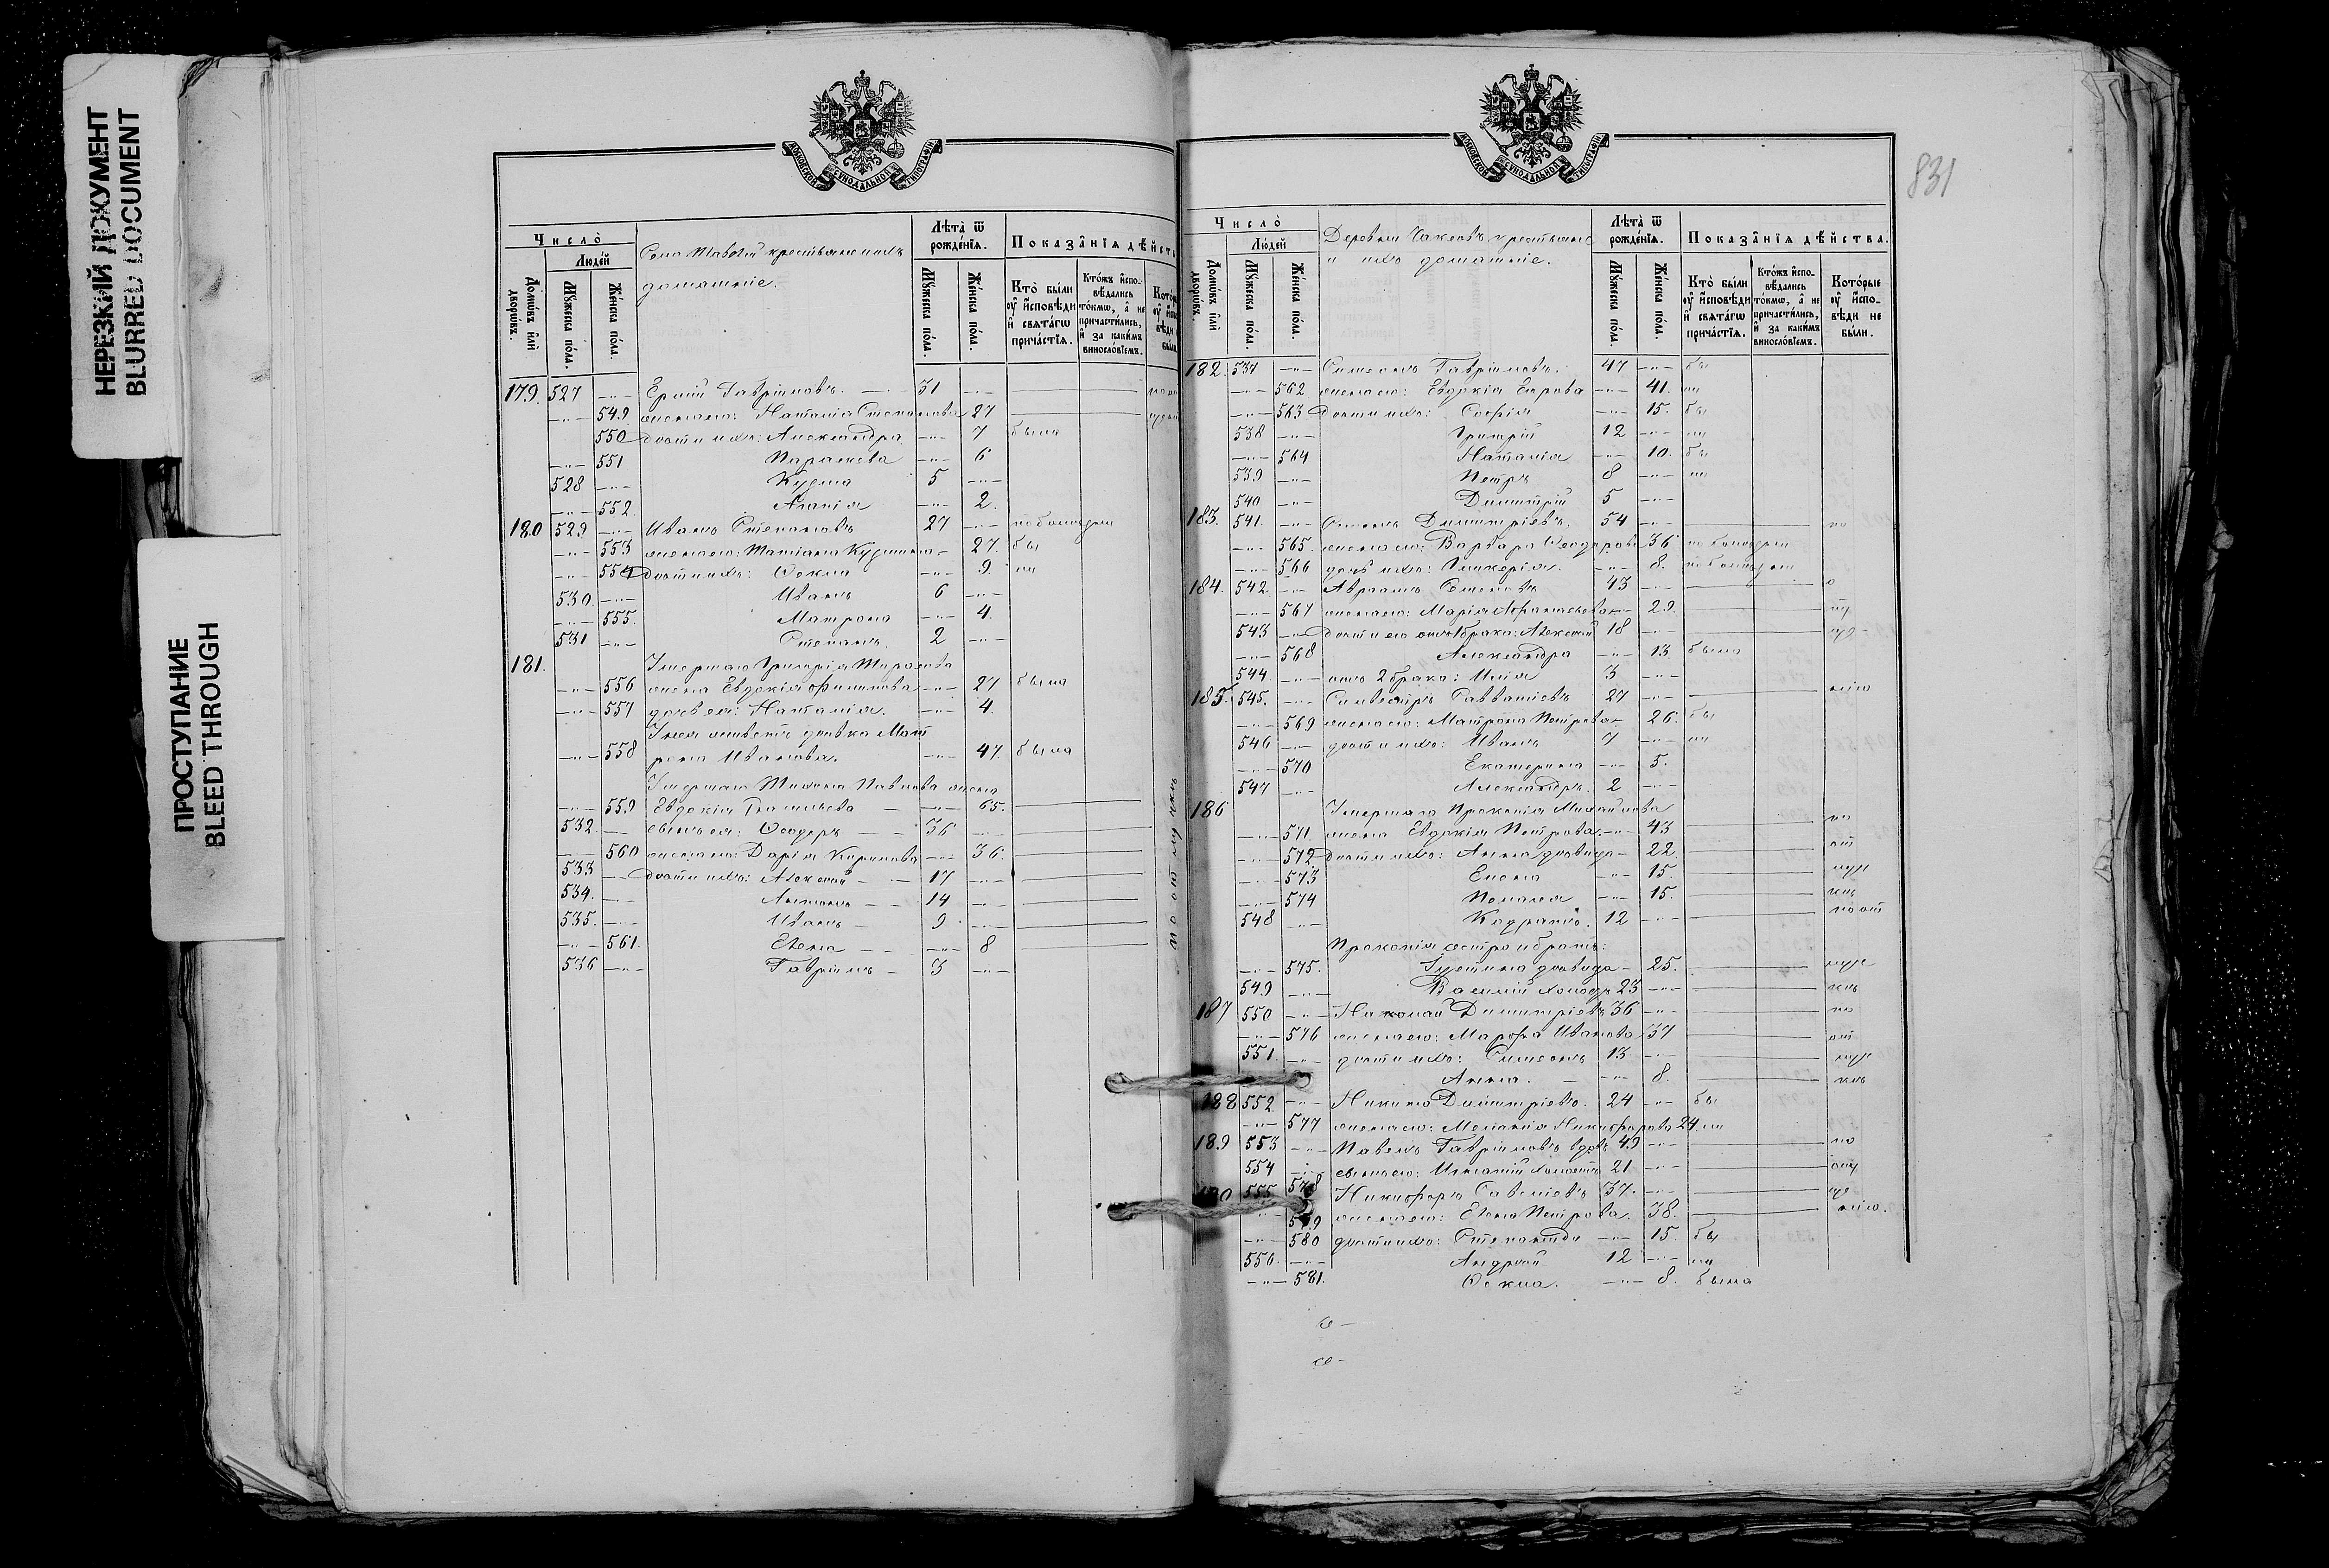 НЕРЕЗКИЙ ДОКУМЕНТ
BLURRED DOCUMENT
ПРОСТУПАНИЕ
BLEED THROUGH
МОСКОВСКОЙ СѴНОДАЛЬНОЙ ТИПОГРАФІИ
Число̀
Людéй
Домѡ́въ и҆лѝ дворѡ́въ.
Мꙋ́жеска по́ла.
Же́нска по́ла.
крестьяне и ихъ
домашніе.
Лѣта̀ ѿ рожде́нїѧ.
Мꙋ́жеска по́ла.
Же́нска по́ла.
Показа̑нїѧ дѣ́йств
Кто̀ бы́ли ᲂу҆ и҆сповѣ́ди и҆ свѧта́гѡ прича́стїѧ.
Кто́жъ и҆спо-вѣ́дались то́кмѡ, а҆ не причасти́лись, и҆ за каки́мъ винослóвїемъ.
179. 527 -"- Гавріиловъ. 31 -"-
-"- 549 жена его: Наталія Степанова 27
550 дѣти ихъ: Александра -"- 7 была
-"- 551 Параскева -"- 6
528 -"- Кузма 5 -"-
-"- 552. Агапія -"- 2.
180 529 -"- Иванъ Стефановъ 27 -"- по болезни
-"- 553 жена его: Татіана Кузмина - 27. бы
-"- 554 дѣти ихъ: Ѳекла -"- 9. ли
530. -"- Иванъ 6 -"-
-"- 555. Матрона -"- 4.
531 -"- Стефанъ. 2 -"-
181. Умершаго Григорія Тарасова
-"- 556 жена Евдокія Филипова -"- 27 была
-"- 557 дочь ея: Наталія. -"- 4.
У нея живетъ дѣвка Мат
-"- 558 рона Иванова. -"- 47. была
Умершаго Тихона Павлова жена
-"- 559 Евдокія Васильева -"- 65.
532. -"- сынъ ея: Ѳеодоръ 36 -"-
-"- 560 жена его: Дарія Кирилова -"- 36.
533 -"- дѣти ихъ: Алексій 17 -"-
534. -"- Антонъ 14 -"-
535. -"- Иванъ 9 -"-
-"- 561. Елена -"- 8
536 -"- Гавріилъ 3 -"-
831
Число̀
Людéй
Домѡ́въ и҆лѝ дворѡ́въ.
Мꙋ́жеска по́ла.
Же́нска по́ла.
Деревни крестьяне
и ихъ домашніе.
Лѣта̀ ѿ рожде́нїѧ.
Мꙋ́жеска по́ла.
Же́нска по́ла.
Показа̑нїѧ дѣ́йства.
Кто̀ бы́ли ᲂу҆ и҆сповѣ́ди и҆ свѧта́гѡ прича́стїѧ.
Кто́жъ и҆спо-вѣ́дались то́кмѡ, а҆ не причасти́лись, и҆ за каки́мъ винослóвїемъ.
Кото́рые ᲂу҆ и҆спо-вѣ́ди не бы́ли.
182. 537 -"- Симеонъ Гавріиловъ. 47 -"- бы
-"- 562 жена его: Евдокія -"- 41. ли
-"- 563 Дѣти ихъ: Софія -"- 15. бы
538 -"- Григорій 12 -"- ли
-"- 564 Наталія -"- 10. бы
539 -"- Петръ 8 -"- ли
540 -"- Димитрій 5 -"-
183. 541. -"- Димитріевъ. 54 -"- по
-"- 565. жена его: Варвара Ѳеодорова 36 по болезни
-"- 566 дочь ихъ: Гликерія. -"- 8.
184. 542. -"- Авраамъ Семеновъ 43 -"-
-"- 567 жена его: Марія Афанасьева -"- 29.
543 -"- Дѣти его отъ 1 брака: Алексій 18 -"-
-"- 568 Александра -"- 13. была
544 -"- отъ 2 брака: Илія 3 -"-
185. 545. -"- Силвестръ Савватіевъ 27 -"-
-"- 569 жена его: Матрона Петрова 26. бы
546 -"- дѣти ихъ: Иванъ 7 -"- ли
-"- 570 Екатерина -"- 5.
547 -"- Александръ. 2 -"-
186 Умершаго Прокопія Михайлова
-"- 571. жена Евдокія Петрова. -"- 43 по
-"- 572 Дѣти ихъ: Анна дѣвица 22. от
-"- 573 Елена -"- 15.
-"- 574 Пелагея -"- 15.
548 -"- Кодратъ. 12 -"-
Прокопія сестра и братъ:
-"- 575. Устинія дѣвица 25.
549 -"- Василій холостъ 23 -"-
187 550 -"- Николай Димитріевъ 36 -"- по
-"- 576 жена его: Марѳа Иванова 37 от
551. -"- дѣти ихъ: Симеонъ 13 -"-
Анна. -"- 8.
188 552. -"- Никита Димитріевъ. 24 -"- бы
-"- 577 жена его: Меланія Никифорова 24. ли
189 553 -"- Павелъ Гавріиловъ вдовъ 49 -"- по
554 -"- сынъ его: Игнатій холостъ 21 -"-
555 578 Никифоръ Савеліевъ 37. -"-
579 жена его: Елена Петрова. 38.
-"- 580 дѣти ихъ: Степанида -"- 15. бы
556. -"- Андрей 12 -"- ли
-"- 581. Ѳекла. -"- 8. была